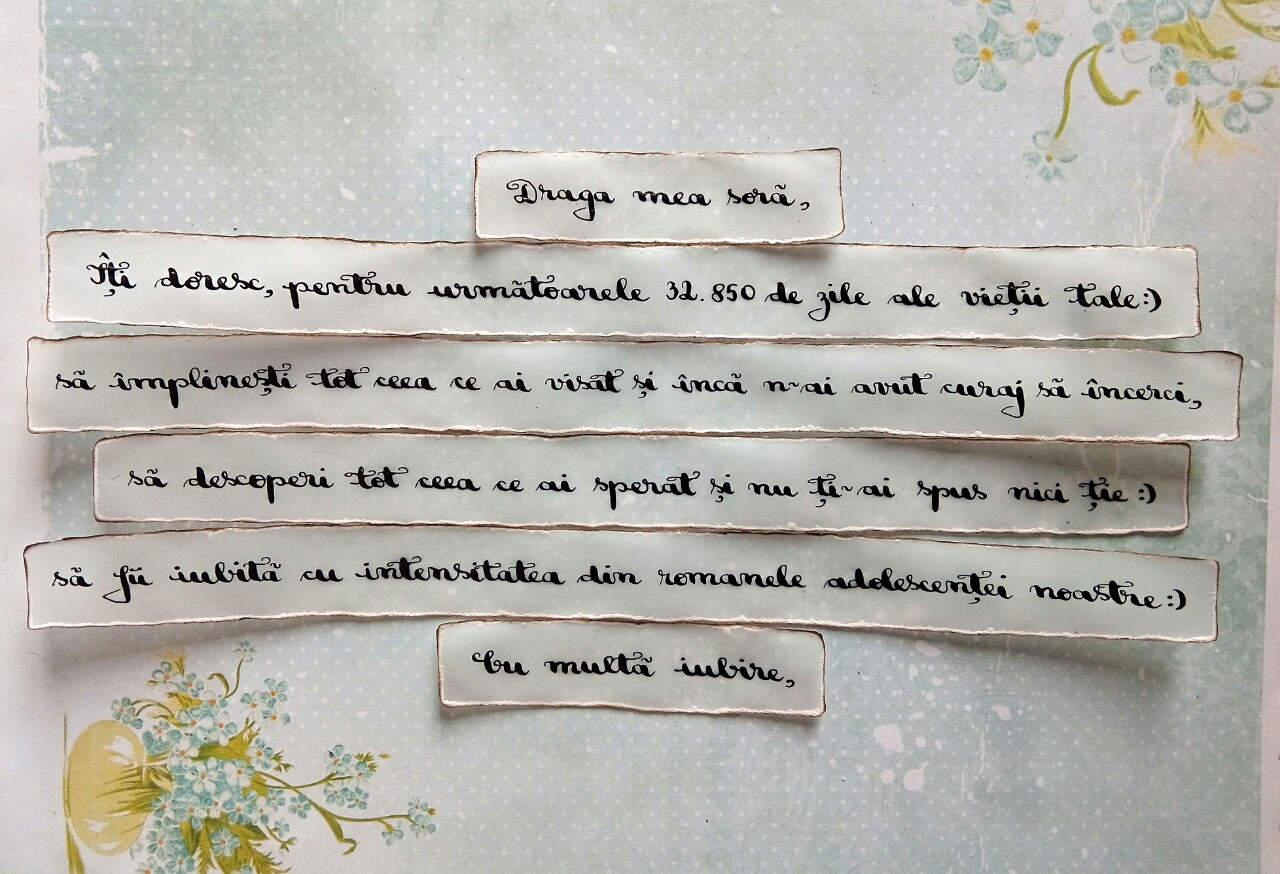 Draga mea soră,
Îți doresc, pentru următoarele 32.850 de zile ale vieții tale:)
să împlinești tot ceea ce ai visat și încă n-ai avut curaj să încerci,
să descoperi tot ceea ce ai sperat și nu ți-ai spus nici ție :)
să fii iubită cu intensitatea din romanele adolescenței noastre:)
Cu multă iubire,